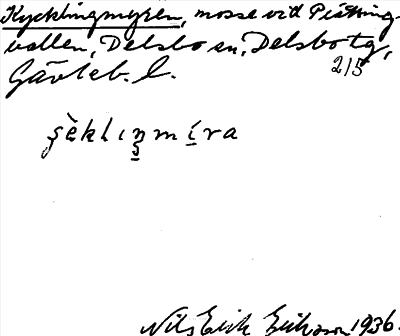 Kycklingmyren, mosse vid Pråsting-
vallen, Delsbo sn, Delsbo tg,
Gävleb. l. 2/5
şɛ̀klıŋmíra
Nils Erik Eriksson 1936.